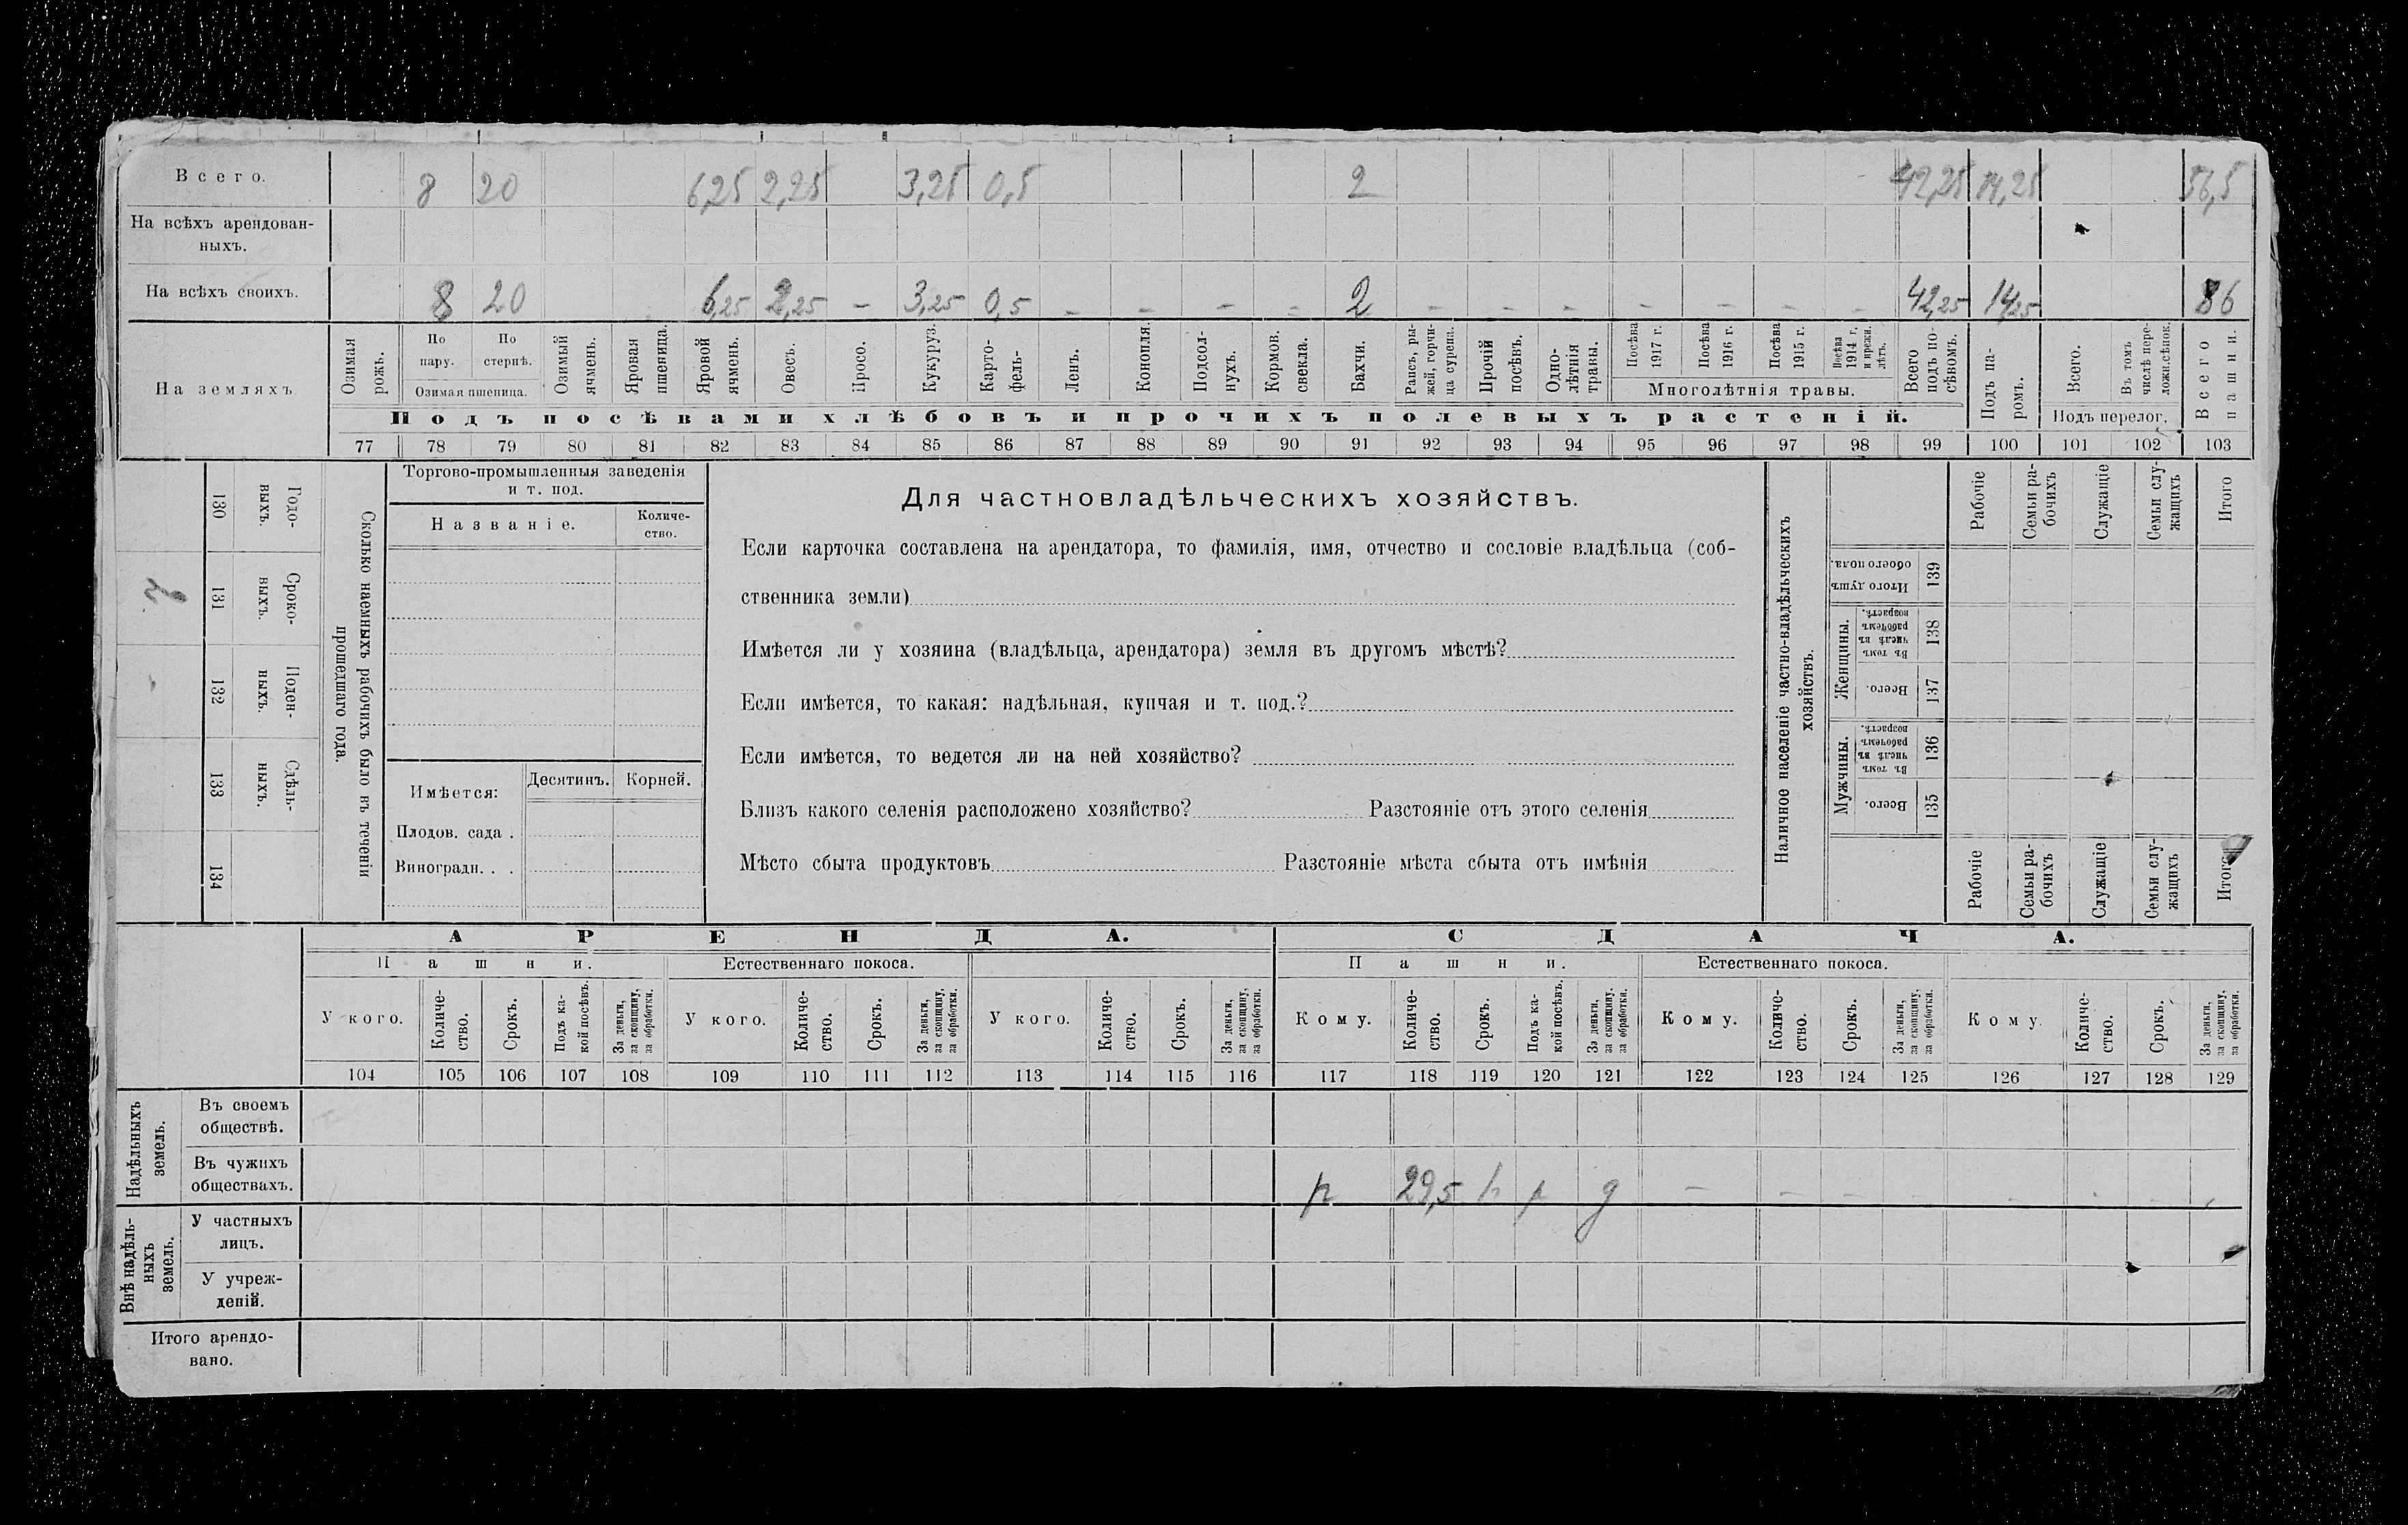 Всего. 8 20 6,25 2,25 3,25 0,5 2 42,25 14,25 56,5
На всѣхъ арендован-
ныхъ.
На всѣхъ своихъ. 8 20 6,25 2,25 — 3,25 0,5 – – – – 2 – – – – – – – 42,25 14,25
На земляхъ.
Озимая рожь.
По пару.
По стернѣ.
Озимая пшеница.
Озимый ячмень.
Яровая пшеница.
Яровой ячмень.
Овесъ.
Просо.
Кукуруз.
Карто-
фель-
Ленъ.
Конопля.
Подсол-
нухъ.
Кормов.
свекла.
Бахчи.
Рапсъ, ры-
жей, горчи-
ца сурепа.
Прочій
посѣвъ.
Одно-
лѣтнія
травы.
Посѣва
1917 г.
Посѣва
1916 г.
Посѣва
1915 г.
Посѣва
1914 г.
и прежн.
лѣтъ.
Многолѣтнія травы.
Всего
подъ по-
сѣвомъ.
Подъ па-
ромъ.
Всего.
Въ томъ
числѣ пере-
ложн.сѣнок.
Подъ перелог.
Всего
пашни.
Подъ посѣвами хлѣбовъ и прочихъ полевыхъ растеній.
77 78 79 80 81 82 83 84 85 86 87 88 89 90 91 92 93 94 95 96 97 98 99 100 101 102 103
130 Годо-
выхъ.
131 Сроко-
ныхъ.
132 Поден-
ныхъ.
133 Сдѣль-
ныхъ.
134
Сколько наемныхъ рабочихъ было въ теченіи
прошедшаго года.
Торгово-промышленныя заведенія
и т. под.
Названіе.
Количе-
ство.
Имѣется:
Десятинъ.
Корней.
Плодов. сада .
Виноградн. . .
Для частновладѣльческихъ хозяйствъ.
Если карточка составлена на арендатора, то фамилія, имя, отчество и сословіе владѣльца (соб-
ственника земли)
Имѣется ли у хозяина (владѣльца, арендатора) земля въ другомъ мѣстѣ?
Если имѣется, то какая: надѣльная, купчая и т. под.?
Если имѣется, то ведется ли на ней хозяйство?
Близъ какого селенія расположено хозяйство? Разстояніе отъ этого селенія
Мѣсто сбыта продуктовъ Разстояніе мѣста сбыта отъ имѣнія
Наличное населеніе частно-владѣльческихъ
хозяйствъ.
Рабочіе
Семьи ра-
бочихъ
Служащіе
Семьи слу-
жащихъ
Итого
Итого душъ
обоего пола.
139
Женщины.
Въ томъ
числѣ въ
рабочемъ
возрастѣ.
138
Всего.
137
Мужчины.
Въ томъ
числѣ въ
рабочемъ
возрастѣ.
136
Всего.
135
Рабочіе
Семьи ра-
бочихъ
Служащіе
Семьи слу-
жащихъ
Итого
АРЕНДА. СДАЧА.
Пашни. Естественнаго покоса. Пашни. Естественнаго покоса.
У кого.
Количе-
ство.
Срокъ.
Подъ ка-
кой посѣвъ.
За деньги,
за скопщину,
за обработки.
У кого.
Количе-
ство.
Срокъ.
За деньги,
за скопщину,
за обработки.
У кого.
Количе-
ство.
Срокъ.
За деньги,
за скопщину,
за обработки.
Кому.
Количе-
ство.
Срокъ.
Подъ ка-
кой посѣвъ.
За деньги,
за скопщину.
за обработки.
Кому.
Количе-
ство.
Срокъ.
За деньги,
за скопщину,
за обработки.
Кому.
Количе-
ство.
Срокъ.
За деньги,
за скопщину,
за обработки.
104 105 106 107 108 109 110 111 112 113 114 115 116 117 118 119 120 121 122 123 124 125 126 127 128 129
Надѣльныхъ
земель.
Въ своемъ
обществѣ.
Въ чужихъ
обществахъ.
р 29,5 р р д — – – – – – – –
Внѣ надѣль-
ныхъ
земель.
У частныхъ
лицъ.
У учреж-
деній.
Итого арендо-
вано.